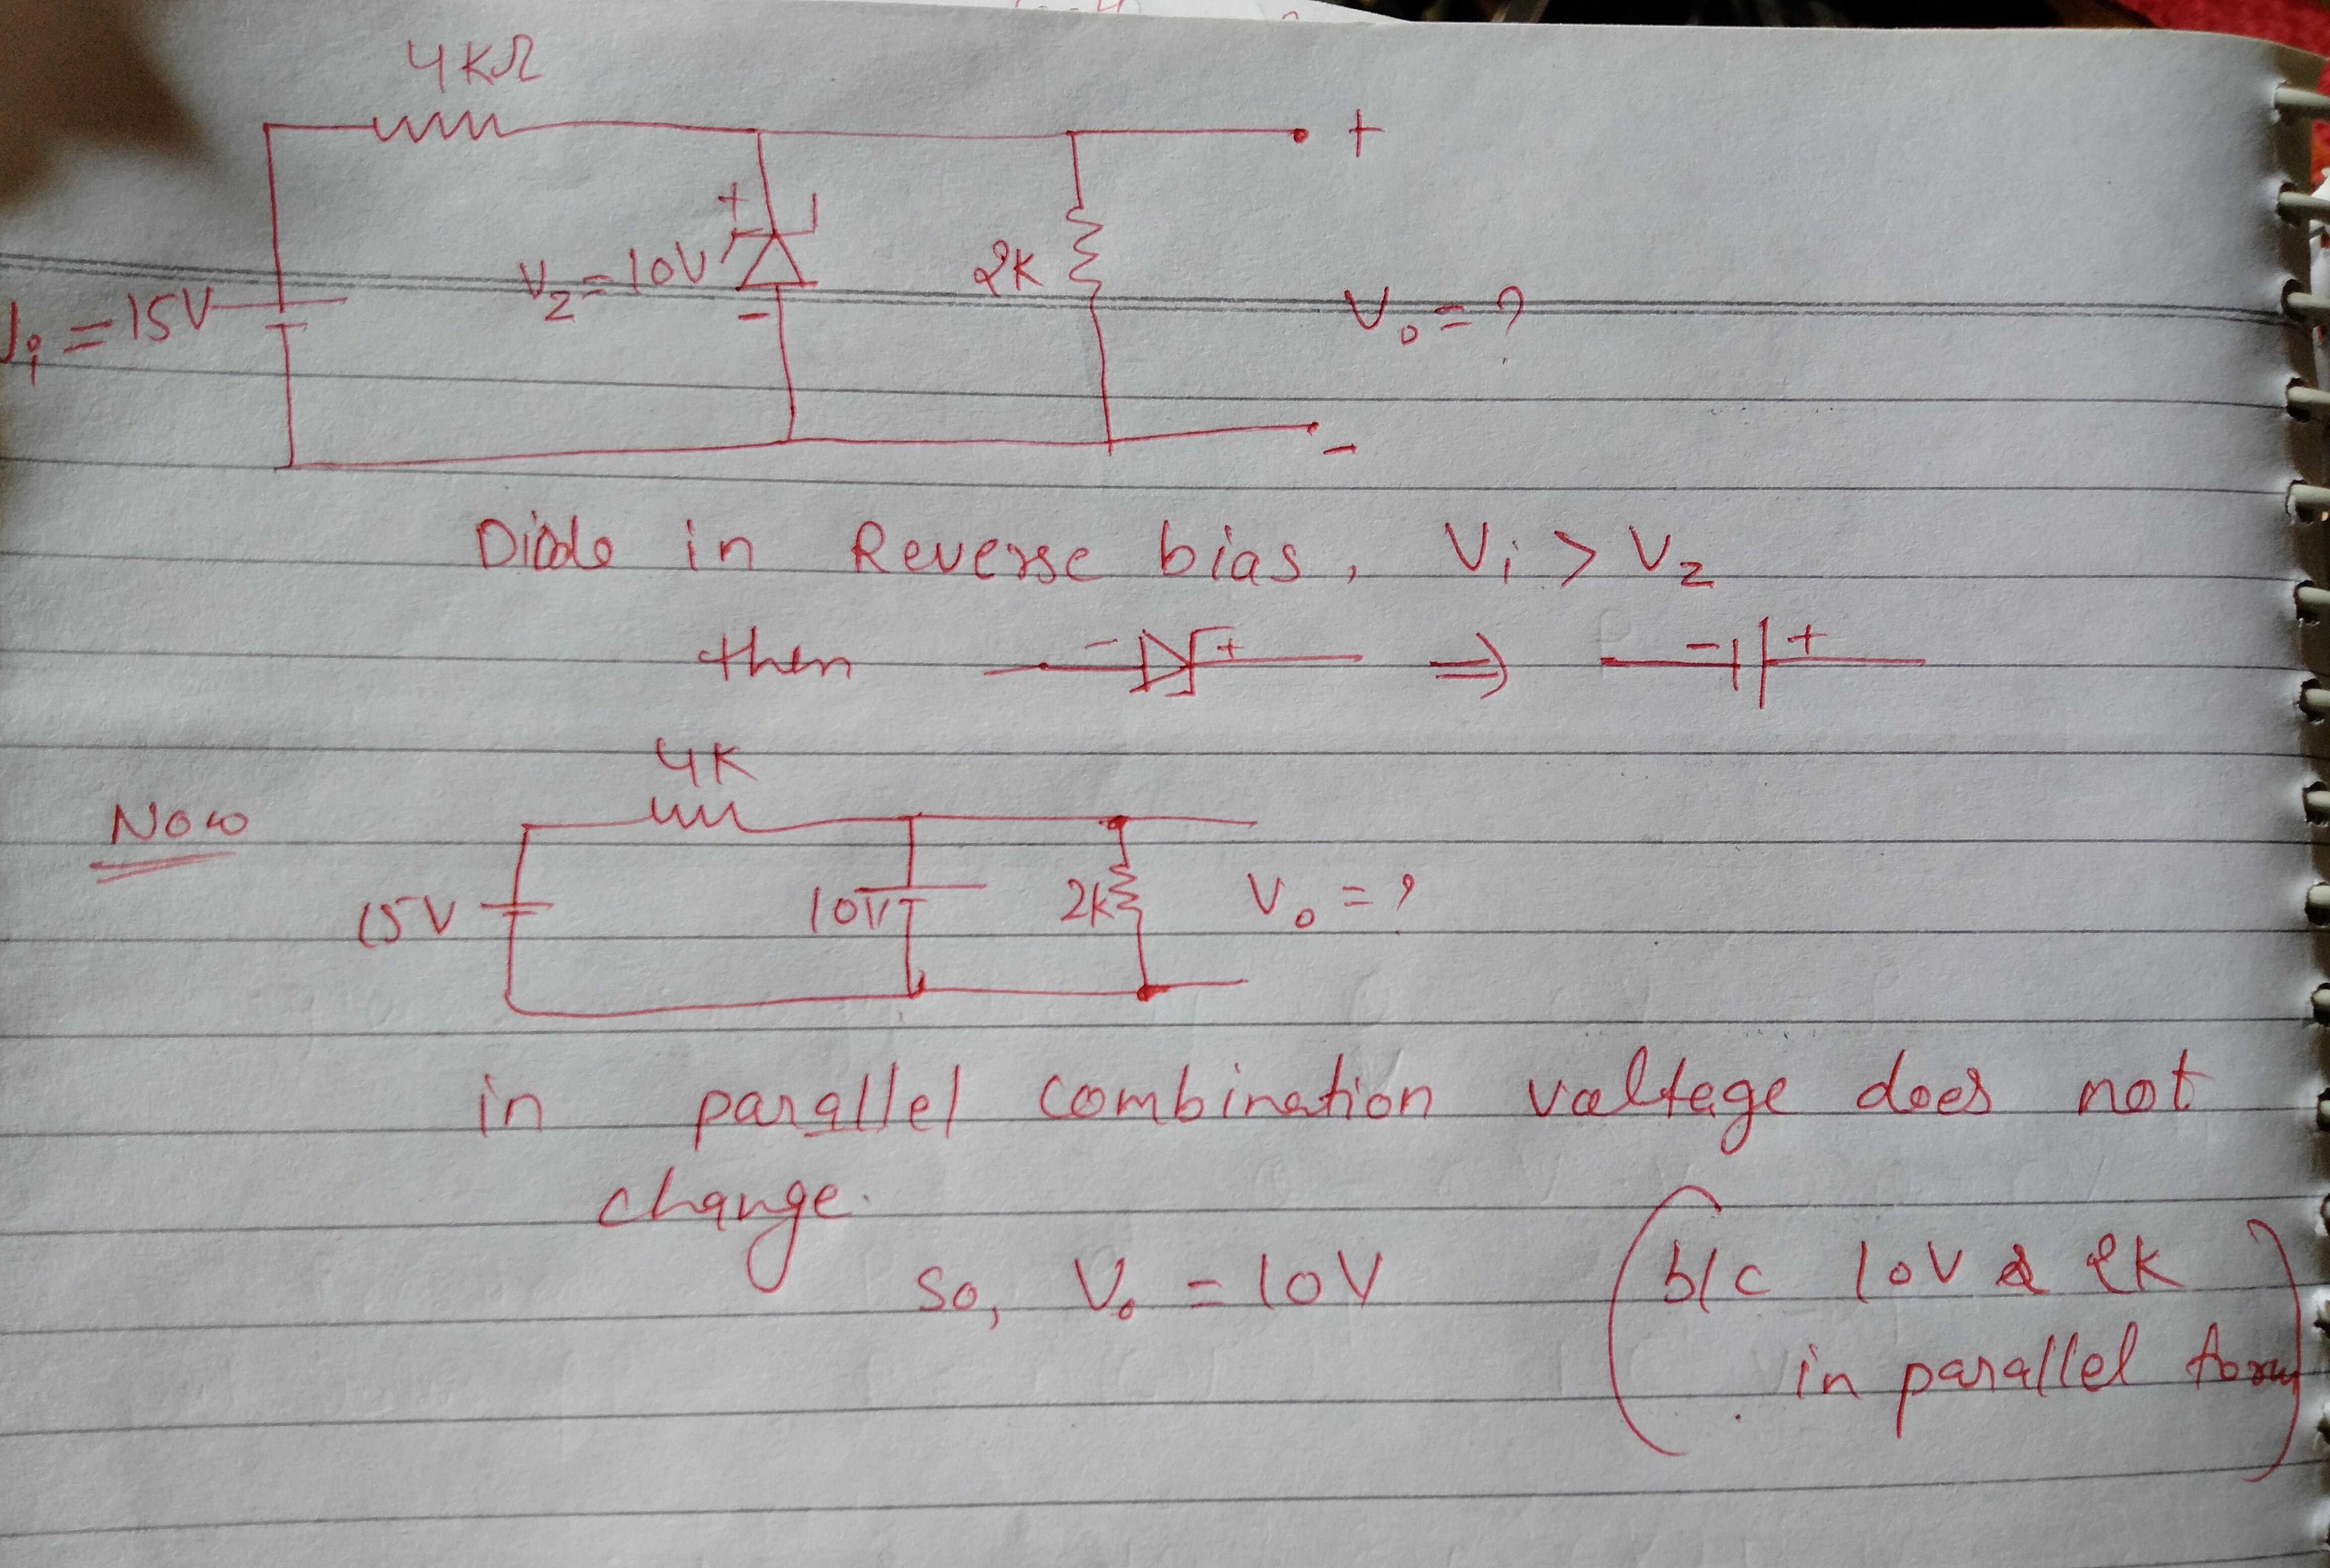 4KΩ
+
+
V_z = 10V
2K
-
V_i = 15V
V_o = ?
-
Diode in Reverse bias, V_i > V_z
then - + ⇒ - +
4K
Now
15V 10V 2K V_o = ?
in parallel combination voltage does not
change.
So, V_o = 10V (b/c 10V & 2K
in parallel form)